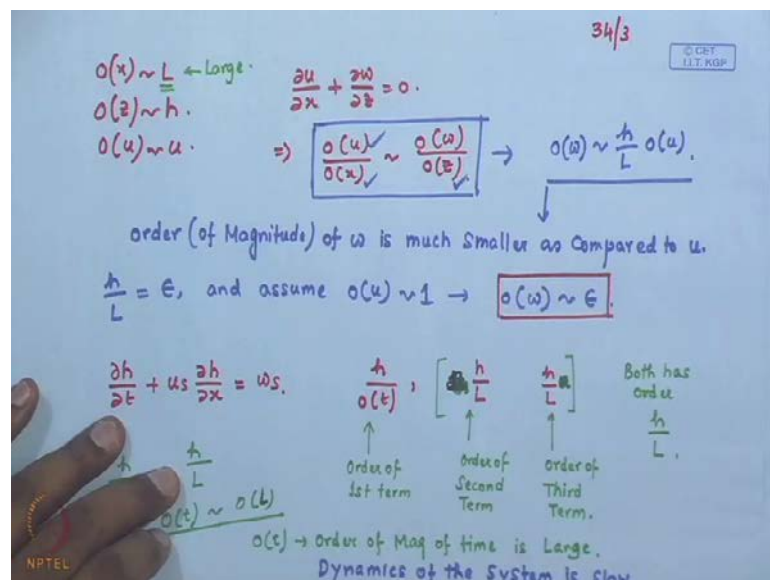 34/3
© CET
I.I.T. KGP
O(x) ~ L ← Large.
O(z) ~ h.
O(u) ~ u.
∂u/∂x + ∂w/∂z = 0.
⇒ O(u)/O(x) ~ O(w)/O(z) → O(w) ~ h/L O(u).
order (of Magnitude) of w is much smaller as Compared to u.
h/L = ϵ, and assume O(u) ~ 1 → O(w) ~ ϵ.
∂h/∂t + us ∂h/∂x = ws.
h/O(t), [ h/L h/L ]
Both has
order
h/L.
↑ Order of 1st term
↑ Order of Second Term
↑ Order of Third Term.
h/L
O(t) ~ O(L)
O(t) → Order of Mag of time is Large.
Dynamics of the System is Slow
NPTEL